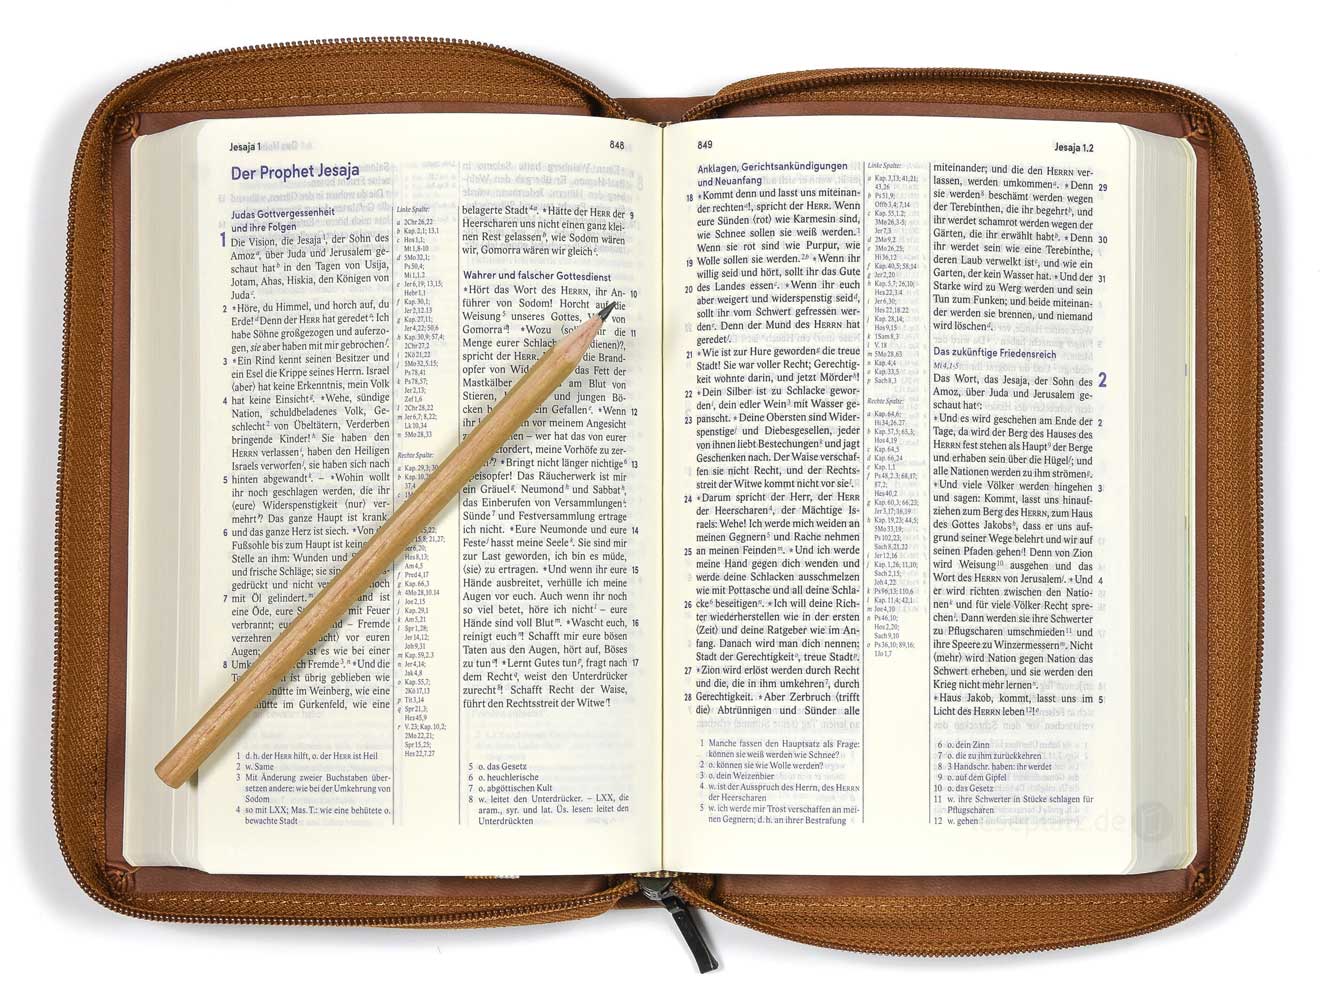 Jesaja 1
848
Der Prophet Jesaja
Judas Gottvergessenheit
und ihre Folgen
1 Die Vision, die Jesaja¹, der Sohn des
Amoz, über Juda und Jerusalem ge-
schaut hat in den Tagen von Usija,
Jotam, Ahas, Hiskia, den Königen von
Juda
2 *Höre, du Himmel, und horch auf, du
Erde! Denn der HERR hat geredet: Ich
habe Söhne großgezogen und auferzo-
gen, sie aber haben mit mir gebrochen
3 *Ein Rind kennt seinen Besitzer und
ein Esel die Krippe seines Herrn. Israel
(aber) hat keine Erkenntnis, mein Volk
4 hat keine Einsicht. *Wehe, sündige
Nation, schuldbeladenes Volk, Ge-
schlecht² von Übeltätern, Verderben
bringende Kinder! Sie haben den
HERRN verlassen, haben den Heiligen
Israels verworfen, sie haben sich nach
5 hinten abgewandt. – *Wohin wollt
ihr noch geschlagen werden, die ihr
(eure) Widerspenstigkeit (nur) ver-
mehrt? Das ganze Haupt ist krank,
6 und das ganze Herz ist siech. *Von
Fußsohle bis zum Haupt ist keine
Stelle an ihm: Wunden und
und frische Schläge; sie sin
gedrückt und nicht ver
7 mit Öl gelindert. and ist
eine Öde, eure mit Feuer
verbrannt; eure – Fremde
verzehren vor euren
Augen; ist es wie bei einer
8 Fremde³. *Und die
ist übrig geblieben wie
im Weinberg, wie eine
im Gurkenfeld, wie eine
Linke Spalte:
a 2Chr 26,22
b Kap. 2,1; 13,1
c Hos 1,1;
Mi 1,1
d 5Mo 32,1;
Ps 50,4;
Mi 1,1.2
e Jer 6,19; 13,15;
Hebr 1,1
f Kap. 30,1;
Jer 2,12.13
g Kap. 27,11;
Jer 4,22; 50,6
h Kap. 30,9; 57,4;
2Chr 27,2
i 2Kö 21,22
j 5Mo 32,5.15;
Ps 78,41
k Ps 78,57;
Jer 2,13;
Zef 1,6
l 2Chr 28,22
m Jer 6,7; 8,22;
Lk 10,34
n 5Mo 28,33
Rechte Spalte:
a Kap. 29,3; 30
Hes 8,13;
Am 4,5
f Pred 4,17
g Kap. 66,3
h 4Mo 28,10.14
i Joe 2,15
j Kap. 29,1
k Am 5,21
l Spr 1,28;
Jer 14,12;
Joh 9,31
m Kap. 59,2.3
n Jer 4,14;
Jak 4,8
o Kap. 55,7;
2Kö 17,13
p Tit 3,14
q Spr 21,3;
Hes 45,9
r V. 23; Kap. 10,2;
2Mo 22,21;
Spr 15,25;
Hes 22,7.27
belagerte Stadt. *Hätte der HERR der 9
Heerscharen uns nicht einen ganz klei-
nen Rest gelassen, wie Sodom wären
wir, Gomorra wären wir gleich
Wahrer und falscher Gottesdienst
*Hört das Wort des HERRN, ihr An- 10
führer von Sodom! Horcht auf die
Weisung⁵ unseres Gottes, von
Gomorra! *Wozu (so ihr die 11
Menge eurer Schlach dienen)?,
spricht der HERR. die Brand-
opfer von Wid das Fett der
Mastkälber am Blut von
Stieren, und jungen Bö-
cken Gefallen. *Wenn 12
ihr vor meinem Angesicht
– wer hat das von eurer
efordert, meine Vorhöfe zu zer-
? *Bringt nicht länger nichtige⁶ 13
Speisopfer! Das Räucherwerk ist mir
ein Gräuel. Neumond und Sabbat,
das Einberufen von Versammlungen:
Sünde⁷ und Festversammlung ertrage
ich nicht. *Eure Neumonde und eure 14
Feste hasst meine Seele. Sie sind mir
zur Last geworden, ich bin es müde,
(sie) zu ertragen. *Und wenn ihr eure 15
Hände ausbreitet, verhülle ich meine
Augen vor euch. Auch wenn ihr noch
so viel betet, höre ich nicht – eure
Hände sind voll Blut. *Wascht euch, 16
reinigt euch! Schafft mir eure bösen
Taten aus den Augen, hört auf, Böses
zu tun! *Lernt Gutes tun, fragt nach 17
dem Recht, weist den Unterdrücker
zurecht⁸! Schafft Recht der Waise,
führt den Rechtsstreit der Witwe!
1 d. h. der HERR hilft, o. der HERR ist Heil
2 w. Same
3 Mit Änderung zweier Buchstaben über-
setzen andere: wie bei der Umkehrung von
Sodom
4 so mit LXX; Mas.T.: wie eine behütete o.
bewachte Stadt
5 o. das Gesetz
6 o. heuchlerische
7 o. abgöttischen Kult
8 w. leitet den Unterdrücker. – LXX, die
aram., syr. und lat. Üs. lesen: leitet den
Unterdrückten
849
Jesaja 1.2
Anklagen, Gerichtsankündigungen
und Neuanfang
18 *Kommt denn und lasst uns miteinan-
der rechten, spricht der HERR. Wenn
eure Sünden (rot) wie Karmesin sind,
wie Schnee sollen sie weiß werden.¹
Wenn sie rot sind wie Purpur, wie
19 Wolle sollen sie werden.² *Wenn ihr
willig seid und hört, sollt ihr das Gute
20 des Landes essen. *Wenn ihr euch
aber weigert und widerspenstig seid,
sollt ihr vom Schwert gefressen wer-
den. Denn der Mund des HERRN hat
geredet
21 *Wie ist zur Hure geworden die treue
Stadt! Sie war voller Recht; Gerechtig-
keit wohnte darin, und jetzt Mörder!
22 *Dein Silber ist zu Schlacke gewor-
den, dein edler Wein³ mit Wasser ge-
23 panscht. *Deine Obersten sind Wider-
spenstige und Diebesgesellen, jeder
von ihnen liebt Bestechungen und jagt
Geschenken nach. Der Waise verschaf-
fen sie nicht Recht, und der Rechts-
streit der Witwe kommt nicht vor sie
24 *Darum spricht der Herr, der HERR
der Heerscharen⁴, der Mächtige Is-
raels: Wehe! Ich werde mich weiden an
meinen Gegnern⁵ und Rache nehmen
25 an meinen Feinden. *Und ich werde
meine Hand gegen dich wenden und
werde deine Schlacken ausschmelzen
wie mit Pottasche und all deine Schla-
26 cke beseitigen. *Ich will deine Rich-
ter wiederherstellen wie in der ersten
(Zeit) und deine Ratgeber wie im An-
fang. Danach wird man dich nennen:
Stadt der Gerechtigkeit, treue Stadt
27 *Zion wird erlöst werden durch Recht
und die, die in ihm umkehren⁷, durch
28 Gerechtigkeit. *Aber Zerbruch (trifft
die) Abtrünnigen und Sünder alle
Linke Spalte:
a Kap. 3,13; 41,21;
43,26
b Ps 51,9;
Offb 3,4; 7,14
c Kap. 55,1.2;
3Mo 26,3-5;
Jer 7,3
d 2Mo 9,2
e 3Mo 26,25;
Hi 36,12
f Kap. 40,5; 58,14
g Jer 2,20
Hes 22,3.4
i Jer 6,30;
Hes 22,18
j Kap. 28,14;
Hos 9,15
k 1Sam 8,3
l V. 18
m 5Mo 28,63
n Kap. 4,4
o Kap. 33,5
p Sach 8,3
Rechte Spalte:
a Kap. 64,6;
Hi 34,26.27
b Kap. 57,5; 65,3;
Hos 4,19
c Kap. 5,4
d Kap. 66,24
e Kap. 1,1
f Ps 48,2.3; 68,17;
87,2;
Hes 40,2
g Kap. 60,3; 66,23;
Jer 3,17; 16,19
h Kap. 19,23; 44,5;
5Mo 33,19;
Ps 102,23;
Sach 8,21.22
i Jer 12,16
j Kap. 1,26; 11,10;
Sach 2,15;
Joh 4,22
k Ps 96,13; 110,6
l Kap. 11,4; 42,1
m Joe 4,10
n Ps 46,10;
Hos 2,20;
Sach 9,10
o Ps 36,10; 89,16;
1Jo 1,7
miteinander; und die den HERRN ver-
lassen, werden umkommen. *Denn 29
sie werden beschämt werden wegen
der Terebinthen, die ihr begehrt, und
ihr werdet schamrot werden wegen der
Gärten, die ihr erwählt habt. *Denn 30
ihr werdet sein wie eine Terebinthe,
deren Laub verwelkt ist, und wie ein
Garten, der kein Wasser hat. *Und der 31
Starke wird zu Werg werden und sein
Tun zum Funken; und beide miteinan-
der werden sie brennen, und niemand
wird löschen
Das zukünftige Friedensreich
Mi 4,1-5
Das Wort, das Jesaja, der Sohn des 2
Amoz, über Juda und Jerusalem ge-
schaut hat:
*Und es wird geschehen am Ende der 2
Tage, da wird der Berg des Hauses des
HERRN fest stehen als Haupt⁹ der Berge
und erhaben sein über die Hügel; und
alle Nationen werden zu ihm strömen
*Und viele Völker werden hingehen 3
und sagen: Kommt, lasst uns hinauf-
ziehen zum Berg des HERRN, zum Haus
des Gottes Jakobs, dass er uns auf-
grund seiner Wege belehrt und wir auf
seinen Pfaden gehen! Denn von Zion
wird Weisung¹⁰ ausgehen und das
Wort des HERRN von Jerusalem. *Und 4
er wird richten zwischen den Natio-
nen und für viele Völker Recht spre-
chen. Dann werden sie ihre Schwerter
zu Pflugscharen umschmieden¹¹ und
ihre Speere zu Winzermessern. Nicht
(mehr) wird Nation gegen Nation das
Schwert erheben, und sie werden den
Krieg nicht mehr lernen
*Haus Jakob, kommt, lasst uns im 5
Licht des HERRN leben¹²!
1 Manche fassen den Hauptsatz als Frage:
können sie weiß werden wie Schnee?
2 o. können sie wie Wolle werden?
3 o. dein Weizenbier
4 w. ist der Ausspruch des Herrn, des HERRN
der Heerscharen
5 w. ich werde mir Trost verschaffen an mei-
nen Gegnern; d. h. an ihrer Bestrafung
6 o. dein Zinn
7 o. die zu ihm zurückkehren
8 3 Handschr. haben: ihr werdet
9 o. auf dem Gipfel
10 o. das Gesetz
11 w. ihre Schwerter in Stücke schlagen für
Pflugscharen
12 w. gehen
leseplatz.de